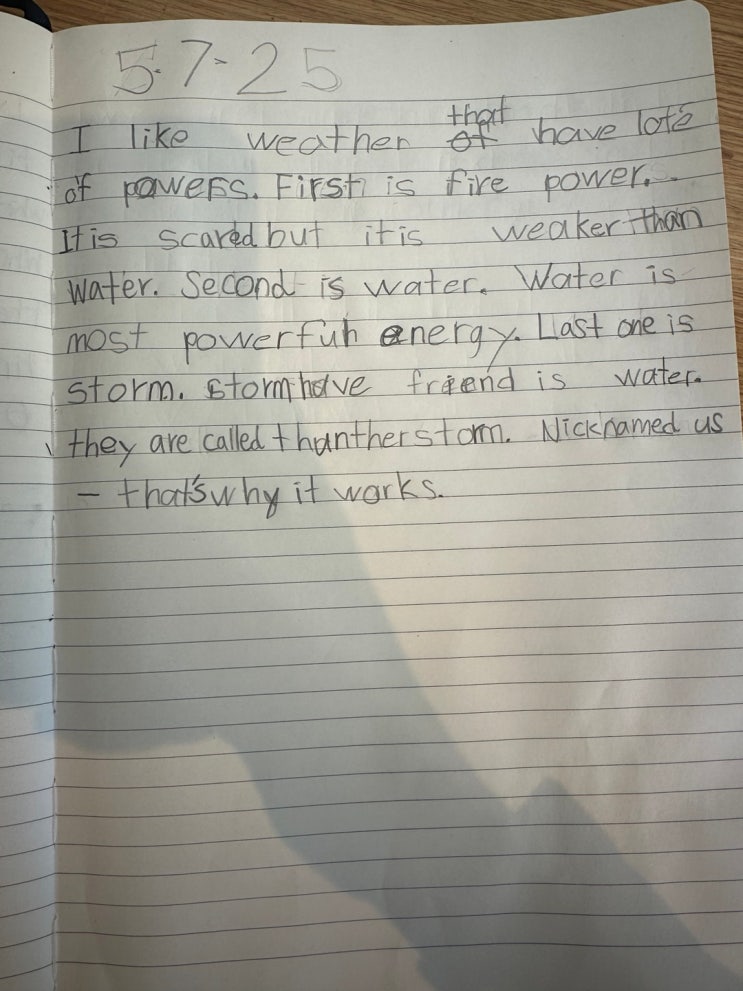 5-7-25
I like weather that have lots
of powers. First is fire power.
It is scared but it is weaker than
water. Second is water. Water is
most powerful energy. Last one is
storm. Storm have friend is water.
they are called thuntherstorm. Nicknamed us
- that's why it works.